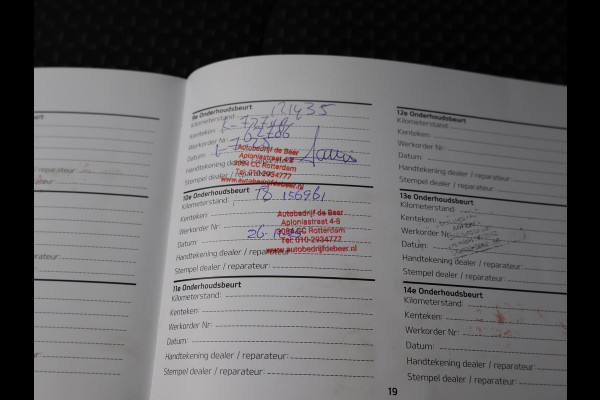 9e Onderhoudsbeurt
Kilometerstand: 121435
Kenteken:
Werkorder Nr:
Datum
Handtekening dealer / reparateur
Stempel dealer / reparateur
Autobedrijf de Beer
Aploniastraat 4-B
3084 CC Rotterdam
Tel: 010-2934777
www.autobedrijfdebeer.nl
10e Onderhoudsbeurt
Kilometerstand: 156961
Kenteken:
Werkorder Nr:
Datum:
Handtekening dealer / reparateur:
Stempel dealer / reparateur:
Autobedrijf de Beer
Aploniastraat 4-B
3084 CC Rotterdam
Tel: 010-2934777
www.autobedrijfdebeer.nl
11e Onderhoudsbeurt
Kilometerstand:
Kenteken:
Werkorder Nr:
Datum:
Handtekening dealer / reparateur:
Stempel dealer / reparateur:
12e Onderhoudsbeurt
Kilometerstand:
Kenteken:
Werkorder Nr:
Datum:
Handtekening dealer / reparateur:
Stempel dealer / reparateur:
13e Onderhoudsbeurt
Kilometerstand:
Kenteken:
Werkorder Nr:
Datum:
Handtekening dealer / reparateur:
Stempel dealer / reparateur:
14e Onderhoudsbeurt
Kilometerstand:
Kenteken:
Werkorder Nr:
Datum:
Handtekening dealer / reparateur:
Stempel dealer / reparateur:
19